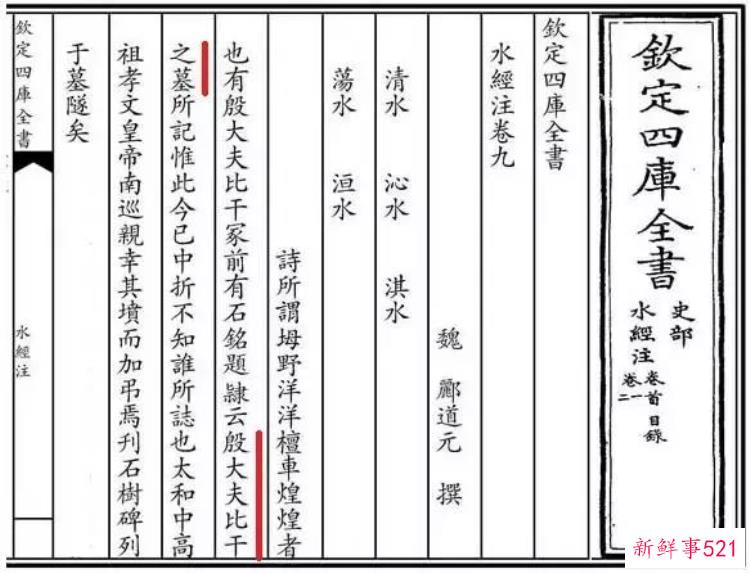 欽定四庫全書
史部
水經注
卷首 目錄
卷一
二
欽定四庫全書
水經注卷九
魏 酈道元 撰
清水 沁水 淇水
蕩水 洹水
詩所謂坶野洋洋檀車煌煌者
也有殷大夫比干冢前有石銘題隸云殷大夫比干
之墓所記惟此今已中折不知誰所誌也太和中高
祖孝文皇帝南巡親幸其墳而加弔焉刋石樹碑列
于墓隧矣
欽定四庫全書
水經注
新鮮事521